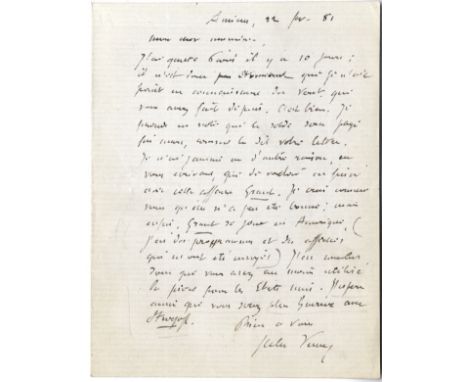 Amiens, 22 fév. 81
mon cher monsieur.
J'ai quitté Paris il y a 10 jours ;
il n'est donc pas étonnant que je n'aie
point eu connaissance du vent que
vous avez fait depuis. C'est bien. Je
prends en note que le solde sera payé
fin mars, comme le dit votre lettre.
Je n'ai jamais eu d'autre raison, en
vous écrivant, que de
avec cette affaire Grant. Je crois comme
vous qu'elle n'a pas été bonne ; mais
enfin, Grant se joue en Amérique, (
j'ai des programmes et des affiches
qui m'ont été envoyés) J'en conclus
donc que vous avez au moins utilisé
la pièce pour les Etats unis. J'espère
aussi que vous serez plus heureux avec
Strogoff.
Bien à vous
Jules Verne